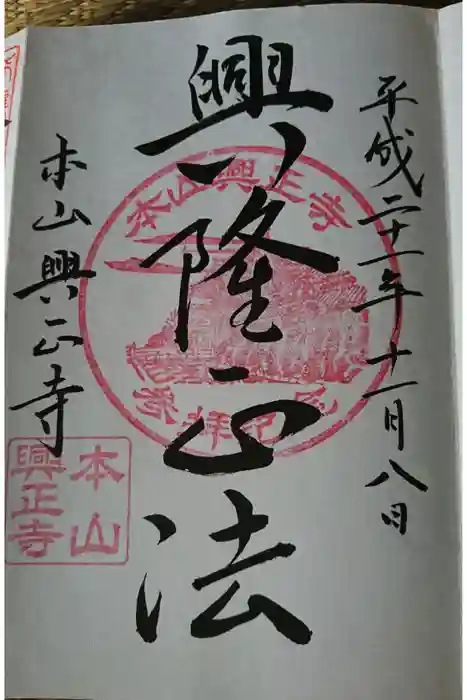 平成二十一年十一月八日
興隆正法
本山興正寺
本山興正寺
参拝記念
本山
興正寺